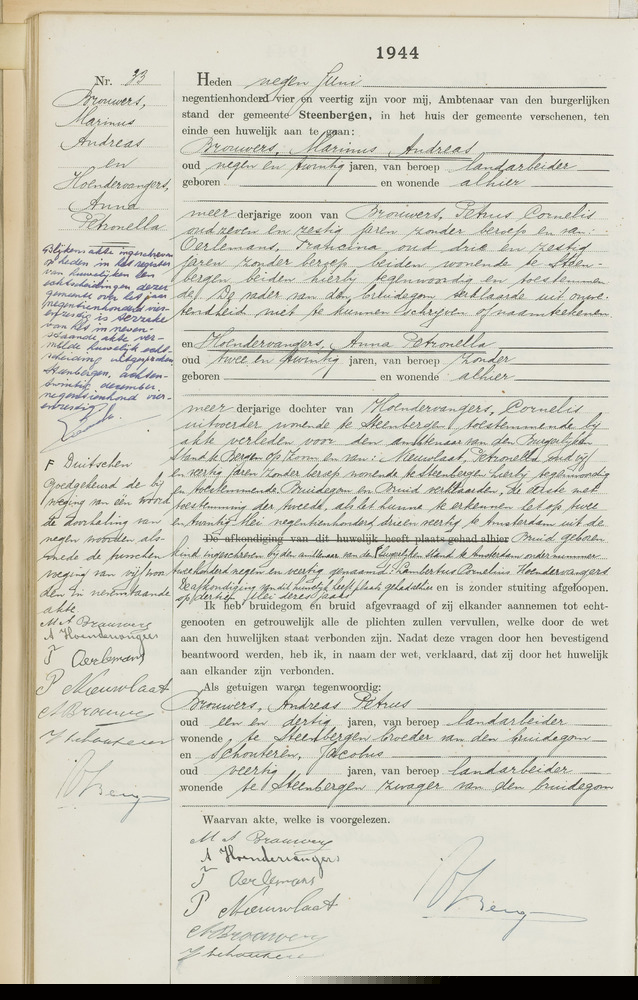 1944
Nr. 33
Brouwers,
Marinus
Andreas
en
Hoendervangers,
Anna
Petronella
Blijkens akte ingeschreven
op heden in het register
van huwelijken en
echtscheidingen dezer
gemeente over het jaar
negentienhonderd vier
en veertig is
van het in neven-
staande akte ver-
melde huwelijk echt-
scheiding uitgesproken
Steenbergen, achten-
twintig december
negentienhonderd vier-
F Duitschen
Goedgekeurd de bij
voeging van één woord
de doorhaling van
negen woorden als-
mede de tusschen
voeging van vijf woor
den in nevenstaande
akte
M A Brouwers
A Hoendervangers
F Oerlemans
P Nieuwlaat
A Brouwers
J Schouteren
Heden negen Juni
negentienhonderd vier en veertig zijn voor mij, Ambtenaar van den burgerlijken
stand der gemeente Steenbergen, in het huis der gemeente verschenen, ten
einde een huwelijk aan te gaan:
Brouwers, Marinus Andreas
oud negen en twintig jaren, van beroep landarbeider
geboren en wonende alhier
meer derjarige zoon van Brouwers, Petrus Cornelis
oud zeven en zestig jaren zonder beroep en van:
Oerlemans, Francina oud drie en zestig
jaren zonder beroep beiden wonende te Steen-
bergen beiden hierbij tegenwoordig en toestemmen
de. De vader van den bruidegom verklaarde uit onge-
tendheid niet te kunnen schrijven of naamteekenen
en Hoendervangers, Anna Petronella
oud twee en twintig jaren, van beroep zonder
geboren en wonende alhier
meer derjarige dochter van Hoendervangers, Cornelis
uitvoerder wonende te Steenbergen toestemmende bij
akte verleden voor den ambtenaar van den Burgerlijken
Stand te Bergen op Zoom en van: Nieuwlaat, Petronella oud vijf
en veertig jaren zonder beroep wonende te Steenbergen hierbij tegenwoordig
en toestemmende. Bruidegom en Bruid verklaarden, de eerste met
toestemming der tweede, als het hunne te erkennen het op twee
en twintig Mei negentienhonderd drie en veertig te Amsterdam uit de
De afkondiging van dit huwelijk heeft plaats gehad alhier Bruid geboren
kind ingeschreven bij den ambtenaar van de Burgerlijken stand te Amsterdam onder nummer
tweehonderd negen en veertig genaamd: Lambertus Cornelius Hoendervangers
De afkondiging van dit huwelijk heeft plaats gehad alhier en is zonder stuiting afgeloopen.
op dertien Mei dezes jaars
Ik heb bruidegom en bruid afgevraagd of zij elkander aannemen tot echt-
genooten en getrouwelijk alle de plichten zullen vervullen, welke door de wet
aan den huwelijken staat verbonden zijn. Nadat deze vragen door hen bevestigend
beantwoord werden, heb ik, in naam der wet, verklaard, dat zij door het huwelijk
aan elkander zijn verbonden.
Als getuigen waren tegenwoordig:
Brouwers, Andreas Petrus
oud een en dertig jaren, van beroep landarbeider
wonende te Steenbergen broeder van den bruidegom
en Schouteren, Jacobus
oud veertig jaren, van beroep landarbeider
wonende te Steenbergen zwager van den bruidegom
Waarvan akte, welke is voorgelezen.
M A Brouwers
A Hoendervangers
F Oerlemans
P Nieuwlaat
A Brouwers
J Schouteren